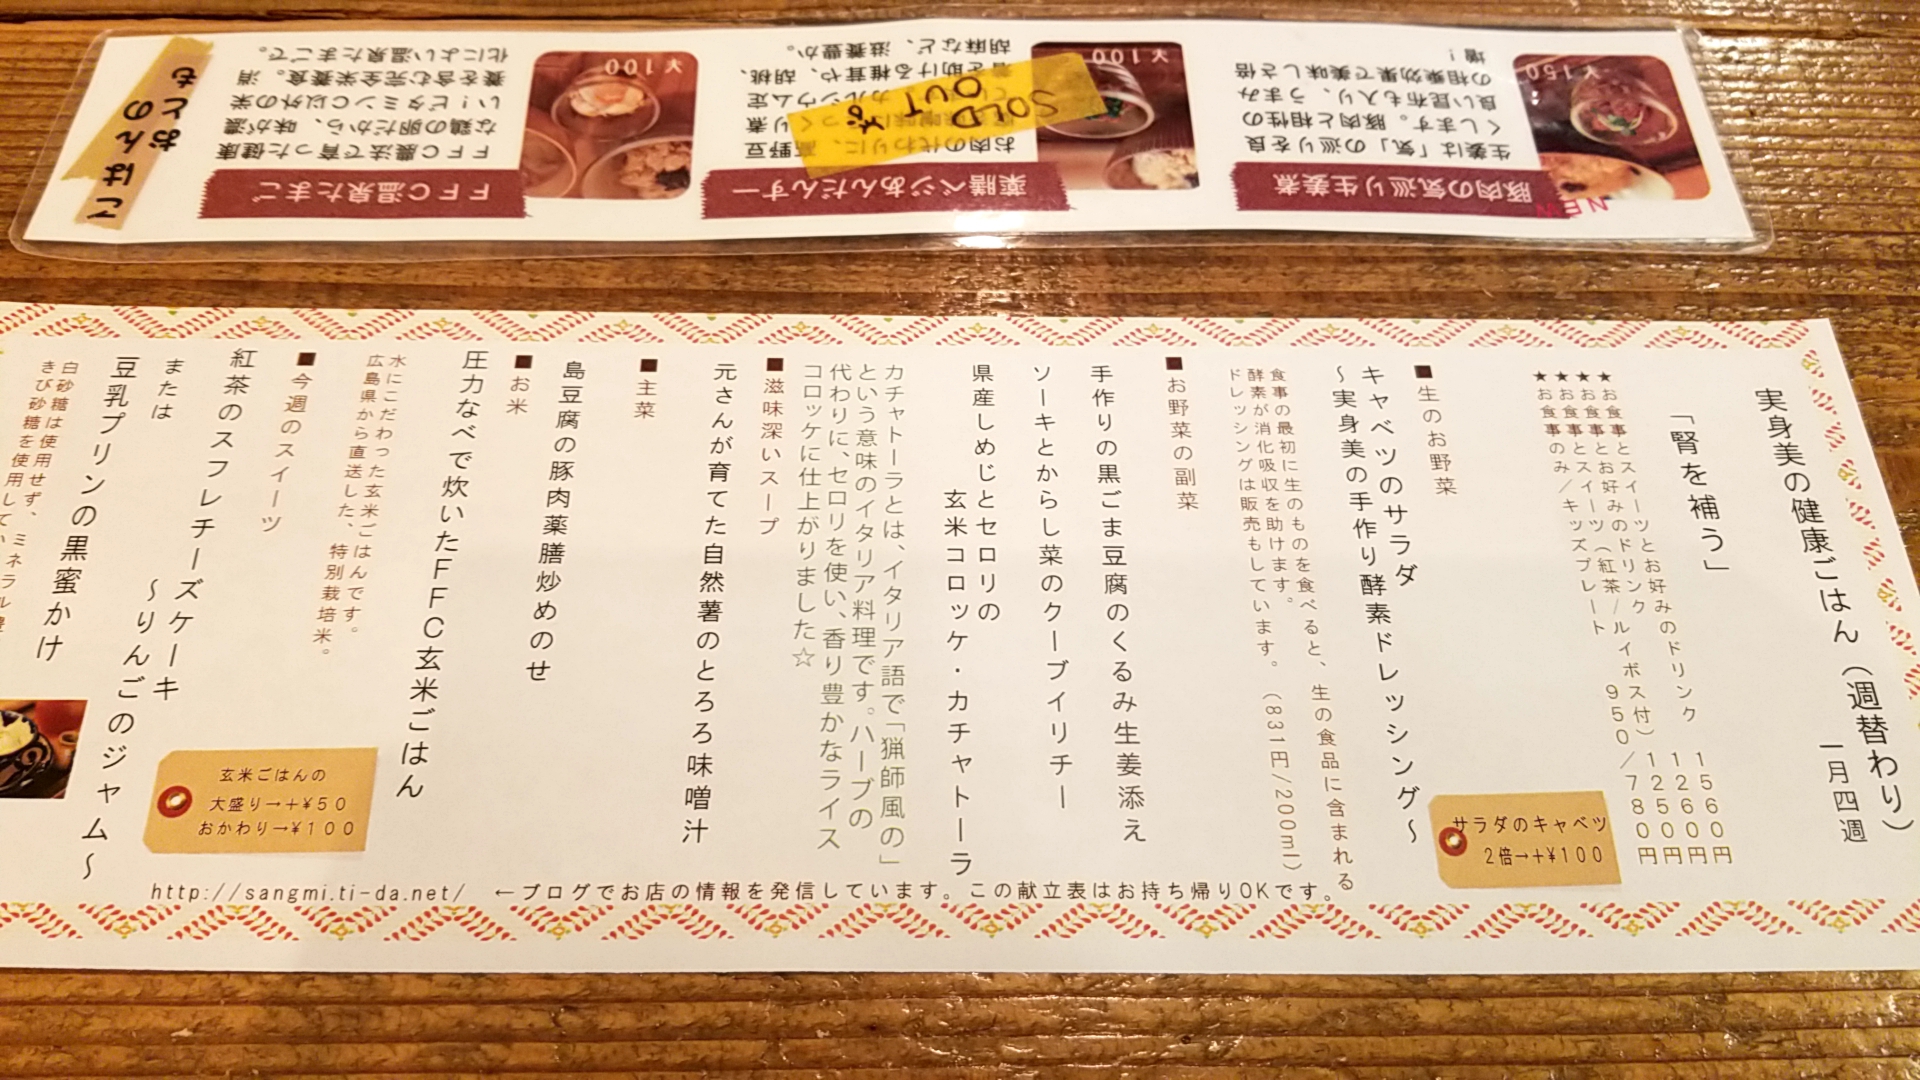 実身美の健康ごはん（週替わり）
一月四週
「腎を補う」
★お食事とスイーツとお好みのドリンク 1560円
★お食事とお好みのドリンク 1260円
★お食事とスイーツ（紅茶/ルイボス付） 1250円
★お食事のみ／キッズプレート 950／780円
■生のお野菜
キャベツのサラダ
～実身美の手作り酵素ドレッシング～
食事の最初に生のものを食べると、生の食品に含まれる
酵素が消化吸収を助けます。
ドレッシングは販売もしています。（831円/200ml）
サラダのキャベツ
2倍→+¥100
■お野菜の副菜
手作りの黒ごま豆腐のくるみ生姜添え
ソーキとからし菜のクーブイリチー
県産しめじとセロリの
玄米コロッケ・カチャトーラ
カチャトーラとは、イタリア語で「猟師風の」
という意味のイタリア料理です。ハーブの
代わりに、セロリを使い、香り豊かなライス
コロッケに仕上がりました☆
■滋味深いスープ
元さんが育てた自然薯のとろろ味噌汁
■主菜
島豆腐の豚肉薬膳炒めのせ
■お米
圧力なべで炊いたFFC玄米ごはん
水にこだわった玄米ごはんです。
広島県から直送した、特別栽培米。
玄米ごはんの
大盛り→+¥50
おかわり→¥100
■今週のスイーツ
紅茶のスフレチーズケーキ
～りんごのジャム～
または
豆乳プリンの黒蜜かけ
白砂糖は使用せず、ミネラル豊
きび砂糖を使用して
http://sangmi.ti-da.net/ ←ブログでお店の情報を発信しています。この献立表はお持ち帰りOKです。
ごはんの
おとも
NEW
豚肉の気巡り生姜煮
生姜は「気」の巡りを良
くします。豚肉と相性の
良い昆布も入り、うまみ
の相乗効果で美味しさ倍
増！
大150
薬膳ベジあんだんすー
お肉の代わりに、高野豆
胡麻など、滋養豊か。
大100
SOLD
OUT
FFC温泉たまご
FFC農法で育った健康
な鶏の卵だから、味が濃
い！ビタミンC以外の栄
養を含む完全栄養食。消
化によい温泉たまごで。
大100